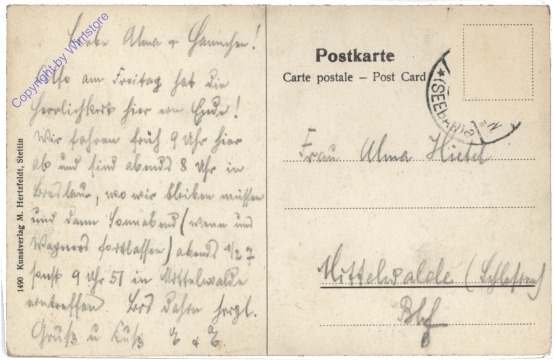 Liebe Alma u Hannchen!
Also am Freitag hat die
Herrlichkeit hier ein Ende!
Wir fahren früh 9 Uhr hier
ab und sind abends 8 Uhr in
Breslau, wo wir bleiben müssen
und dann Sonnabend (wenn uns
Wagners fortlassen) abends 1/2 7
sonst 9 Uhr 51 in Mittelwalde
eintreffen. Bis dahin herzl.
Gruß u Kuß E + E
1490 Kunstverlag M. Hertzfeldt, Stettin
Postkarte
Carte postale – Post Card
(SEEBAD)
Frau Alma
Mittelwalde (Schlesien)
Bhf
Copyright by Winstore